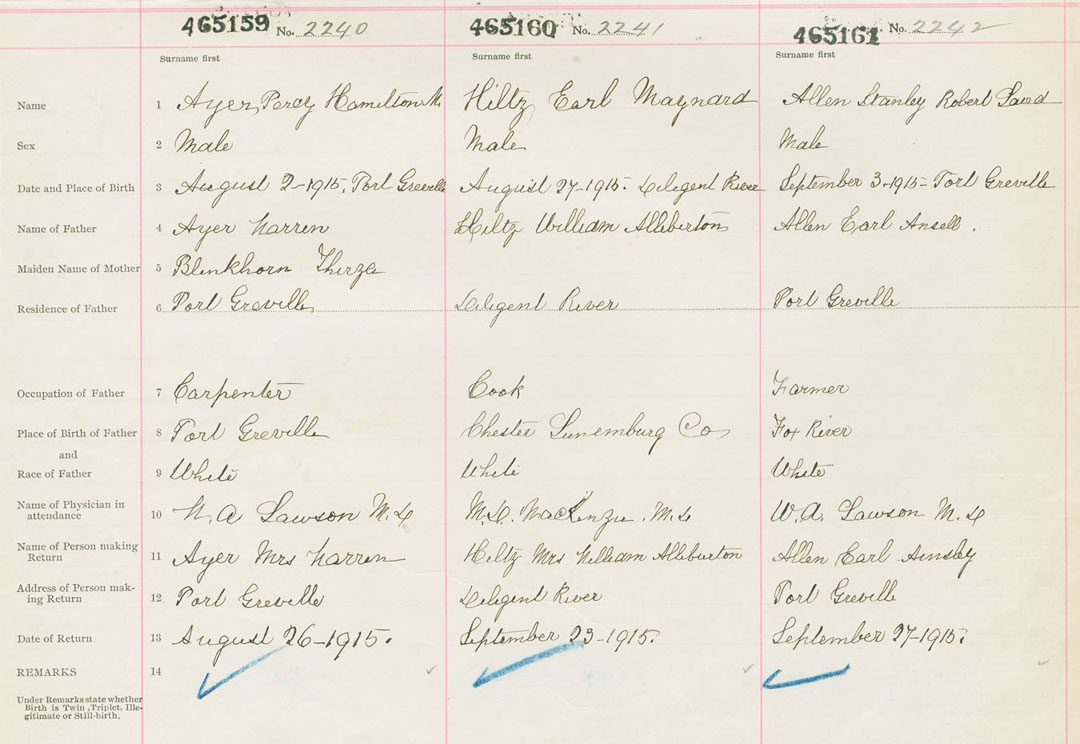 465159 No. 2240 465160 No. 2241 465161 No. 2242
Surname first Surname first Surname first
Name 1 Ayer, Percy Hamilton Hiltz, Earl Maynard Allen Stanley Robert Laird
Sex 2 Male Male Male
Date and Place of Birth 3 August 2-1915. Port Greville August 27-1915. Deligent River September 3-1915- Port Greville
Name of Father 4 Ayer Warren Hiltz William Alleburton Allen Earl Ansell.
Maiden Name of Mother 5 Blenkhorn Thirza
Residence of Father 6 Port Greville Deligent River Port Greville
Occupation of Father 7 Carpenter Cook Farmer
Place of Birth of Father 8 Port Greville Chester Lunemburg Co Fox River
and
Race of Father 9 White White White
Name of Physician in
attendance 10 W. A Lawson M.D M.D. MacKenzie. M.D W. A. Lawson M.D
Name of Person making
Return 11 Ayer Mrs Warren Hiltz Mrs William Alleburton Allen Earl Ainsley
Address of Person mak-
ing Return 12 Port Greville Deligent River Port Greville
Date of Return 13 August 26-1915. September 23-1915. September 27-1915.
REMARKS 14
Under Remarks state whether
Birth is Twin, Triplet, Ille-
gitimate or Still-birth.